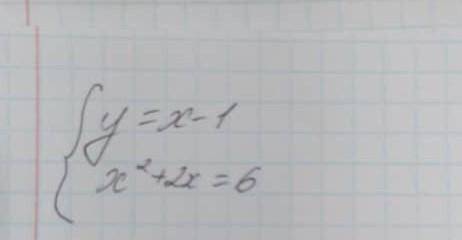 y = x - 1
x² + 2x = 6